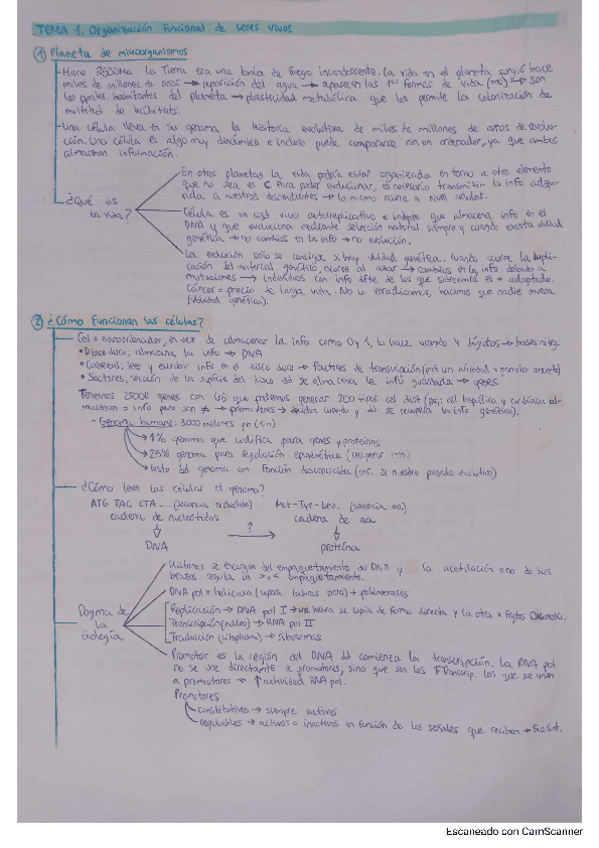 TEMA 1. Organización funcional de seres vivos
① Planeta de microorganismos
Hace 2500Ma la Tierra era una bola de fuego incandescente. La vida en el planeta surgió hace
miles de millones de años → aparición del agua → aparecen las 1as formas de vida (mo) → son
los ppales. habitantes del planeta → plasticidad metabólica que les permite la colonización de
multitud de hábitats.
Una célula lleva en su genoma la historia evolutiva de miles de millones de años de evolu-
ción. Una célula es algo muy dinámico e incluso puede compararse con un ordenador, ya que ambas
almacenan información.
¿Qué es la vida?
En otros planetas la vida podría estar organizada en torno a otro elemento
que no sea el C. Para poder evolucionar, es necesario transmitir la info adqui-
rida a nuestros descendientes → lo mismo ocurre a nivel celular.
Célula es un sist vivo autorreplicativo e indpte que almacena info en el
DNA y que evoluciona mediante selección natural siempre y cuando exista
genética → no cambios en la info → no evolución.
La evolución sólo se consigue si hay genética. Cuando ocurre la dupli-
cación del material genético, ocurre al azar → cambios en la info debido a
mutaciones → individuos con info difte de los que sobrevivirá el + adaptado.
Cáncer = precio de larga vida. No lo erradicamos, hacemos que nadie muera
genética).
② ¿Cómo funcionan las células?
Cél = nanoordenador, en vez de almacenar la info como 0 y 1, lo hace usando 4 dígitos → bases nitrog.
• Disco duro: almacena la info → DNA
• Cabezal: lee y escribir info en el disco duro → factores de transcripción
• Sectores: sección de la superficie del disco dd se almacena la info guardada → genes
Tenemos 25000 genes con los que podemos generar 200 tipos cel dist (pej: cél hepática y cardiaca al-
macenan = info pero son ≠ → promotores → deciden cuando y dd se recupera la info genética).
- Genoma humano: 3000 millones pb
→ 1% genoma que codifica para genes y proteínas
→ 25% genoma para regulación epigenética
→ resto del genoma con función desconocida (inf. de nuestro pasado evolutivo)
¿Cómo leen las células el genoma?
ATG TAC CTA .... (secuencia nucleótidos) Met-Tyr-Leu... (secuencia aa)
cadena de nucleótidos → ? → cadena de aa
DNA proteína
Dogma de la biología
Histonas se encargan del empaquetamiento del DNA y la acetilación o no de sus
brazos regula un > o < empaquetamiento.
DNA pol = helicasa (separa hebras DNA) + polimerasas
Replicación → DNA pol I → una hebra se copia de forma directa y la otra x frgtos Okazaki.
Transcripción (núcleo) → RNA pol II
Traducción (citoplasma) → ribosomas
Promotor es la región del DNA dd comienza la transcripción. La RNA pol
no se une directamte a promotores, sino que son los FTranscrip. los que se unen
a promotores → ↑ actividad RNA pol.
Promotores
constitutivos → siempre activos
regulables → activos o inactivos en función de las señales que reciben →
Escaneado con CamScanner